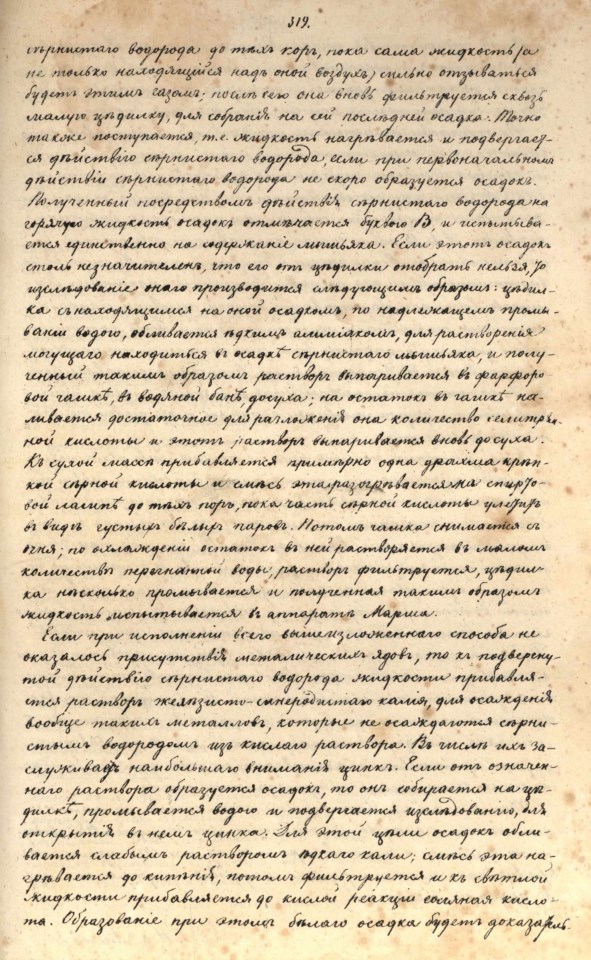 319.
сѣрнистаго водорода до тѣхъ поръ, пока сама жидкость (а
не только находящійся надъ оной воздухъ) сильно отзываться
будетъ этимъ газомъ; послѣ сего она вновь фильтруется сквозь
малую цѣдилку, для собранія на сей послѣдней осадка. Точно
также поступается, т.е. жидкость нагрѣвается и подвергает-
ся дѣйствію сѣрнистаго водорода, если при первоначальномъ
дѣйствіи сѣрнистаго водорода не скоро образуется осадокъ.
Полученный посредствомъ дѣйствія сѣрнистаго водорода на
горячую жидкость осадокъ отмѣчается буквою В, и испытыва-
ется единственно на содержаніе мышьяка. Если этотъ осадокъ
столь незначителенъ, что его отъ цѣдилки отобрать нельзя, то
изслѣдованіе онаго производится слѣдующимъ образомъ: цѣдил-
ка съ находящимся на оной осадкомъ, по надлежащемъ промы-
ваніи водою, обливается ѣдкимъ амміакомъ, для растворенія
могущаго находиться въ осадкѣ сѣрнистаго мышьяка, и полу-
ченный такимъ образомъ растворъ выпаривается въ фарфоро-
вой чашкѣ, въ водяной банѣ досуха; на остатокъ въ чашкѣ на-
ливается достаточное для разложенія она количество селитрян-
ной кислоты и этотъ растворъ выпаривается вновь досуха.
Къ сухой массѣ прибавляется примѣрно одна драхма крѣп-
кой сѣрной кислоты и смѣсь эта разогрѣвается на спирто-
вой лампѣ до тѣхъ поръ, пока часть сѣрной кислоты улетитъ
въ видѣ густыхъ бѣлыхъ паровъ. Потомъ чашка снимается съ
огня; по охлажденіи остатокъ въ ней растворяется въ маломъ
количествѣ перегнанной воды, растворъ фильтруется, цѣдил-
ка нѣсколько промывается и полученная такимъ образомъ
жидкость испытывается въ аппаратѣ Марша.
Если при исполненіи всего вышеизложеннаго способа не
оказалось присутствія металическихъ ядовъ, то къ подверену-
той дѣйствію сѣрнистаго водорода жидкости прибавля-
ется растворъ желѣзисто-синеродистаго калія, для осажденія
вообще такихъ металловъ, которые не осаждаются сѣрни-
стымъ водородомъ изъ кислаго раствора. Въ числѣ ихъ за-
служиваетъ наибольшаго вниманія цинкъ. Если отъ означен-
наго раствора образуется осадокъ, то онъ собирается на цѣ-
дилкѣ, промывается водою и подвергается изслѣдованію, для
открытія въ немъ цинка. Для этой цѣли осадокъ обли-
вается слабымъ растворомъ ѣдкаго кали; смѣсь эта на-
грѣвается до кипѣнія, потомъ фильтруется и къ свѣтлой
жидкости прибавляется до кислой реакціи соляная кисло-
та. Образованіе при этомъ бѣлаго осадка будетъ доказатель-